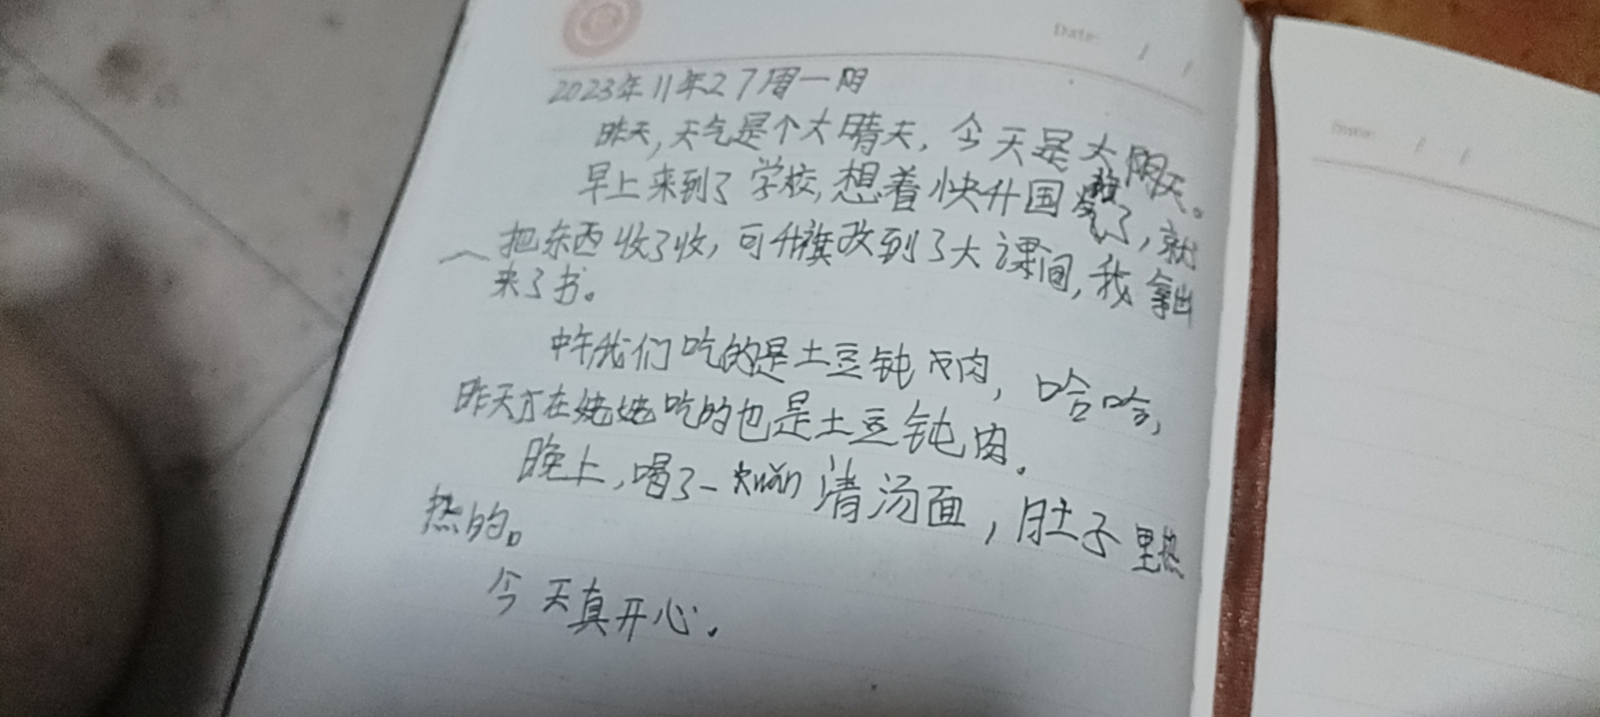 Date: / /
2023年11年27周一阴
昨天,天气是个大晴天,今天是大阴天。
早上来到了学校,想着快升国旗了,就
把东西收了收,可升旗改到了大课间,我拿出
来了书。
中午我们吃的是土豆钝肉,哈哈,
昨天才在姥姥吃的也是土豆钝肉。
晚上,喝了一 清汤面,肚子里热
热的。
今天真开心.
Date: / /